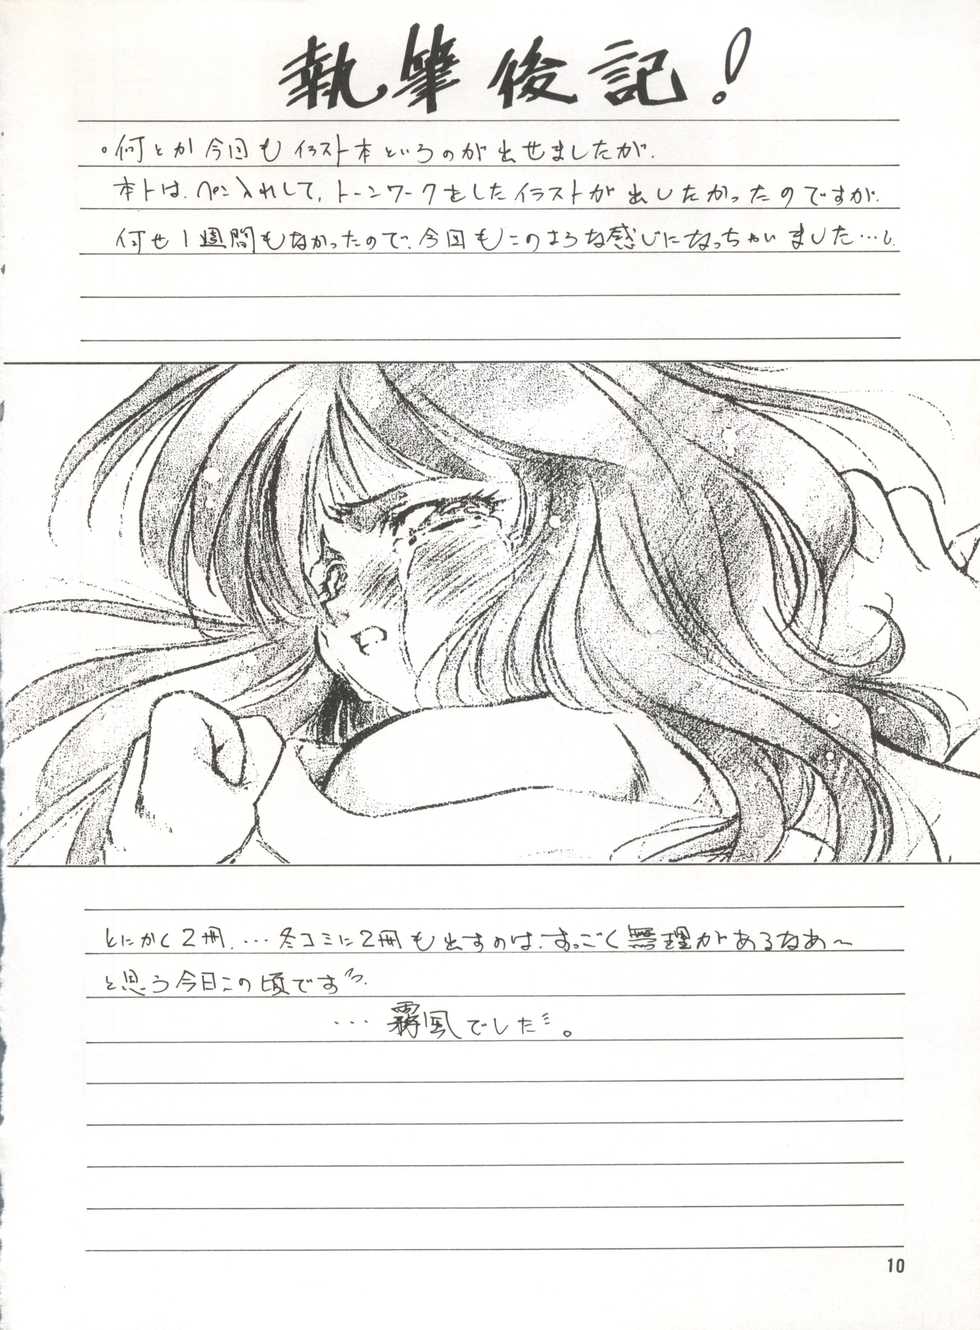 執筆後記！
。何とか今回もイラスト本というのが出せましたが.
本トは、ペン入れして、トーンワークをしたイラストが出したかったのですが.
何せ1週間もなかったので、今回もこのような感じになっちゃいました…し.
とにかく2冊、…冬コミに2冊も出すのは、すっごく無理があるなあ〜
と思う今日この頃です.
…霧風でした。
10